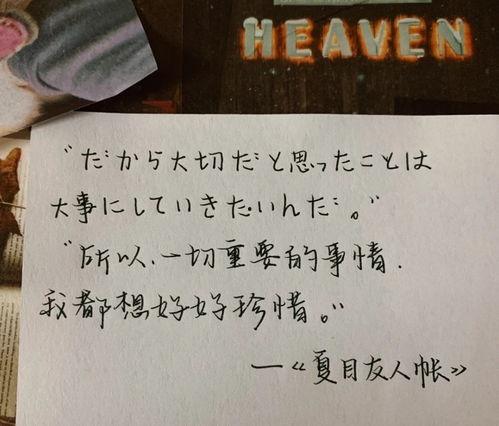 HEAVEN
"だから大切だと思ったことは
大事にしていきたいんだ。"
"所以,一切重要的事情,
我都想好好珍惜。"
—《夏目友人帐》